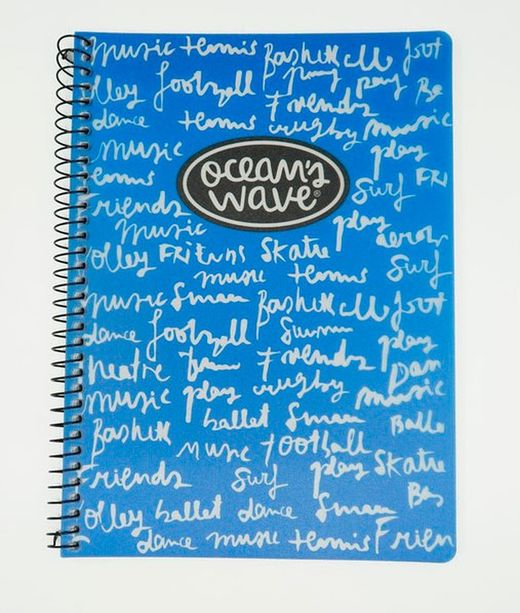 music tennis Basketball foot
olley football play play Ba
dance tennis rugby music
Friends
music play
ocean's
wave®
ennis Surf FRI
riends play
music aerob
olley FRIENS Skate
music tennis Surf
music Basketball foot
dance football play
heatre Friends Dan
music play rugby music
ballet Balle
Baskett music football
Friends Surf play Skate
Bas
olley ballet dance
dance music tennis Frien